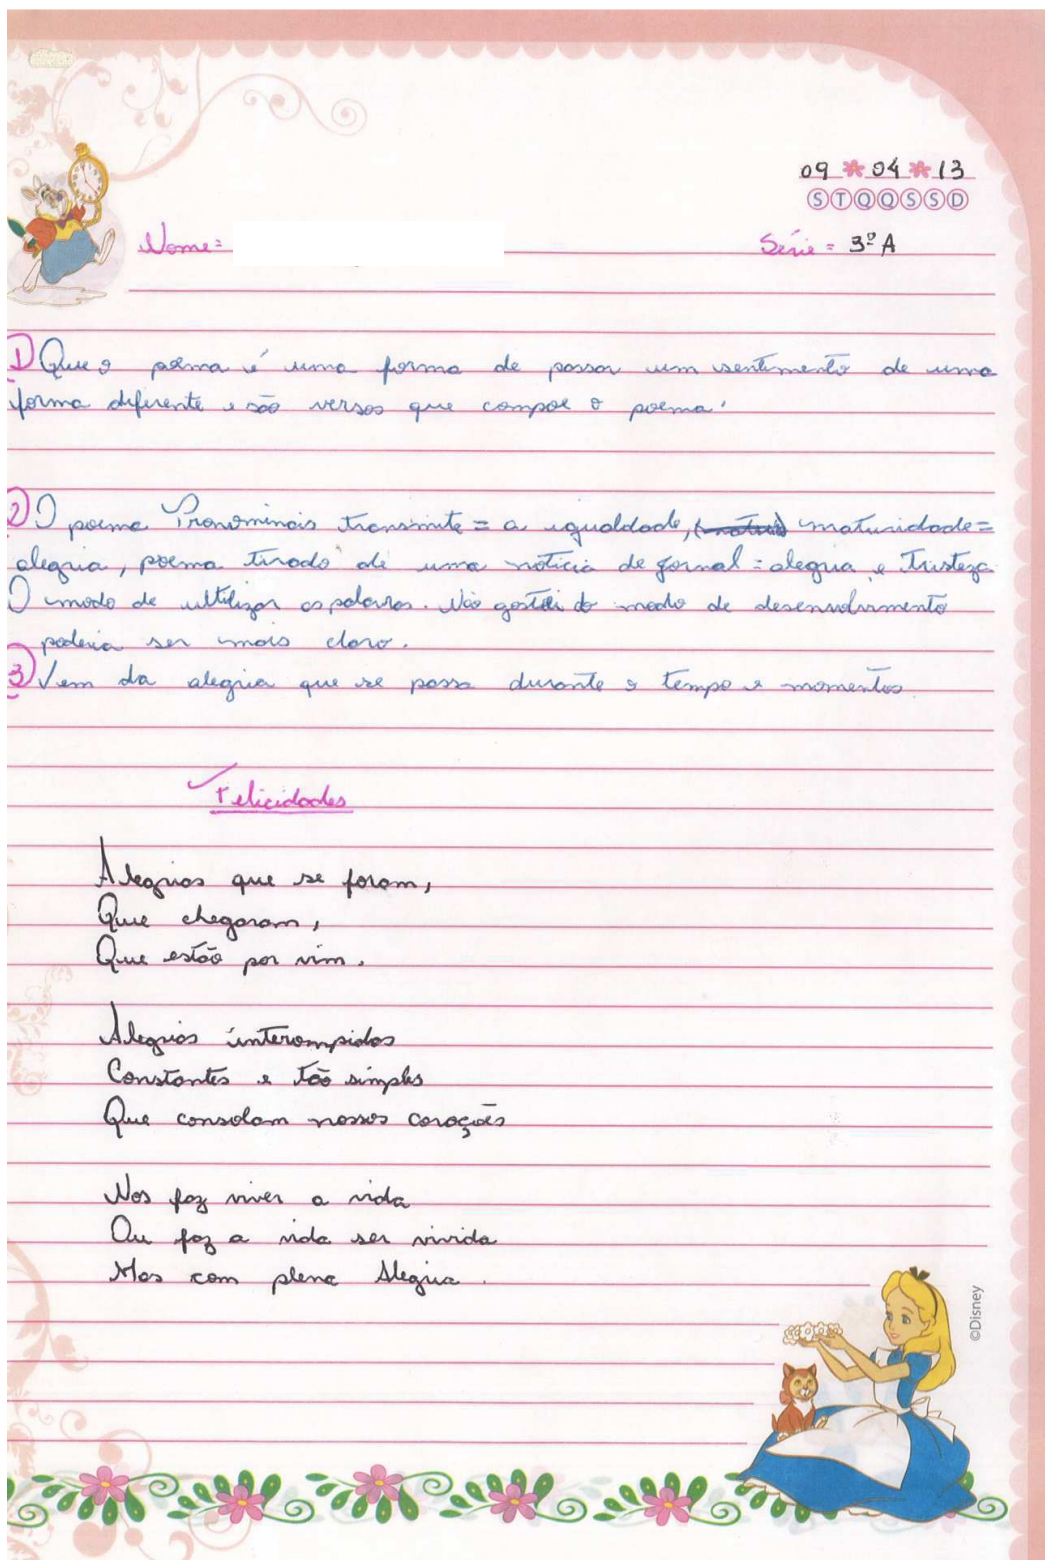 09 04 13
S T Q Q S S D
Nome= Série = 3º A
1) Que o poema é uma forma de passar um sentimento de uma
forma diferente e são versos que compoe o poema.
2) O poema Pronominais transmite = a igualdade, maturidade =
alegria, poema tirado de uma notícia de jornal = alegria e tristeza.
O modo de ultilizar as palavras. Não gostei do modo de desenvolvimento
poderia ser mais claro.
3) Vem da alegria que se passa durante o tempo e momentos.
Felicidades
Alegrias que se foram,
Que chegaram,
Que estão por vim.
Alegrias interompidas
Constantes e tão simples
Que consolam nossos corações
Nos faz viver a vida
Ou faz a vida ser vivida
Mas com plena Alegria.
©Disney